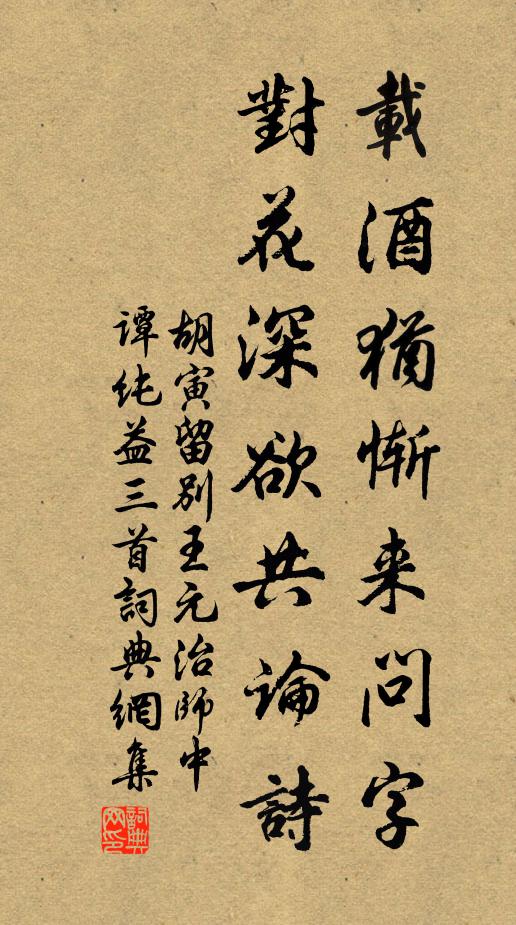 載酒猶慚来問字
對花深欲共論詩
胡寅留別王元治師中
譚純益三首詞典網集
詞典网印